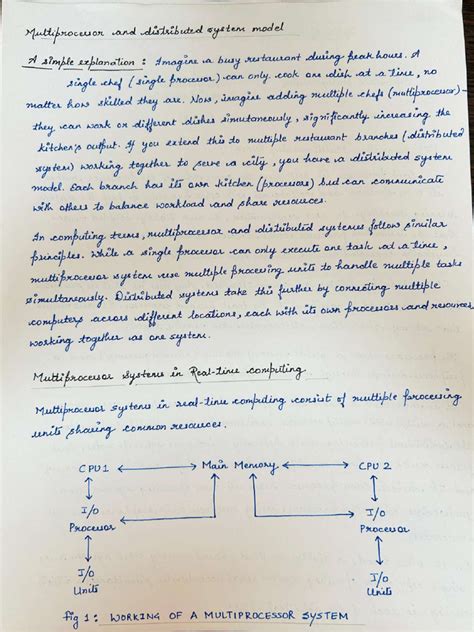 Multiprocessor and distributed system model
A simple explanation : Imagine a busy restaurant during peak hours. A
single chef (single processor) can only cook one dish at a time, no
matter how skilled they are. Now, imagine adding multiple chefs (multiprocessor) -
they can work on different dishes simultaneously, significantly increasing the
kitchen's output. If you extend this to multiple restaurant branches (distributed
system) working together to serve a city, you have a distributed system
model. Each branch has its own kitchen (processors) but can communicate
with others to balance workload and share resources.
In computing terms, multiprocessor and distributed systems follow similar
principles. While a single processor can only execute one task at a time,
multiprocessor system use multiple processing units to handle multiple tasks
simultaneously. Distributed systems take this further by connecting multiple
computers across different locations, each with its own processors and resources,
working together as one system.
Multiprocessor Systems in Real-time computing
Multiprocessor systems in real-time computing consist of multiple processing
units sharing common resources.
CPU 1 Main Memory CPU 2
I/O I/O
Processor Processor
I/O I/O
Units Units
Fig 1 : WORKING OF A MULTIPROCESSOR SYSTEM